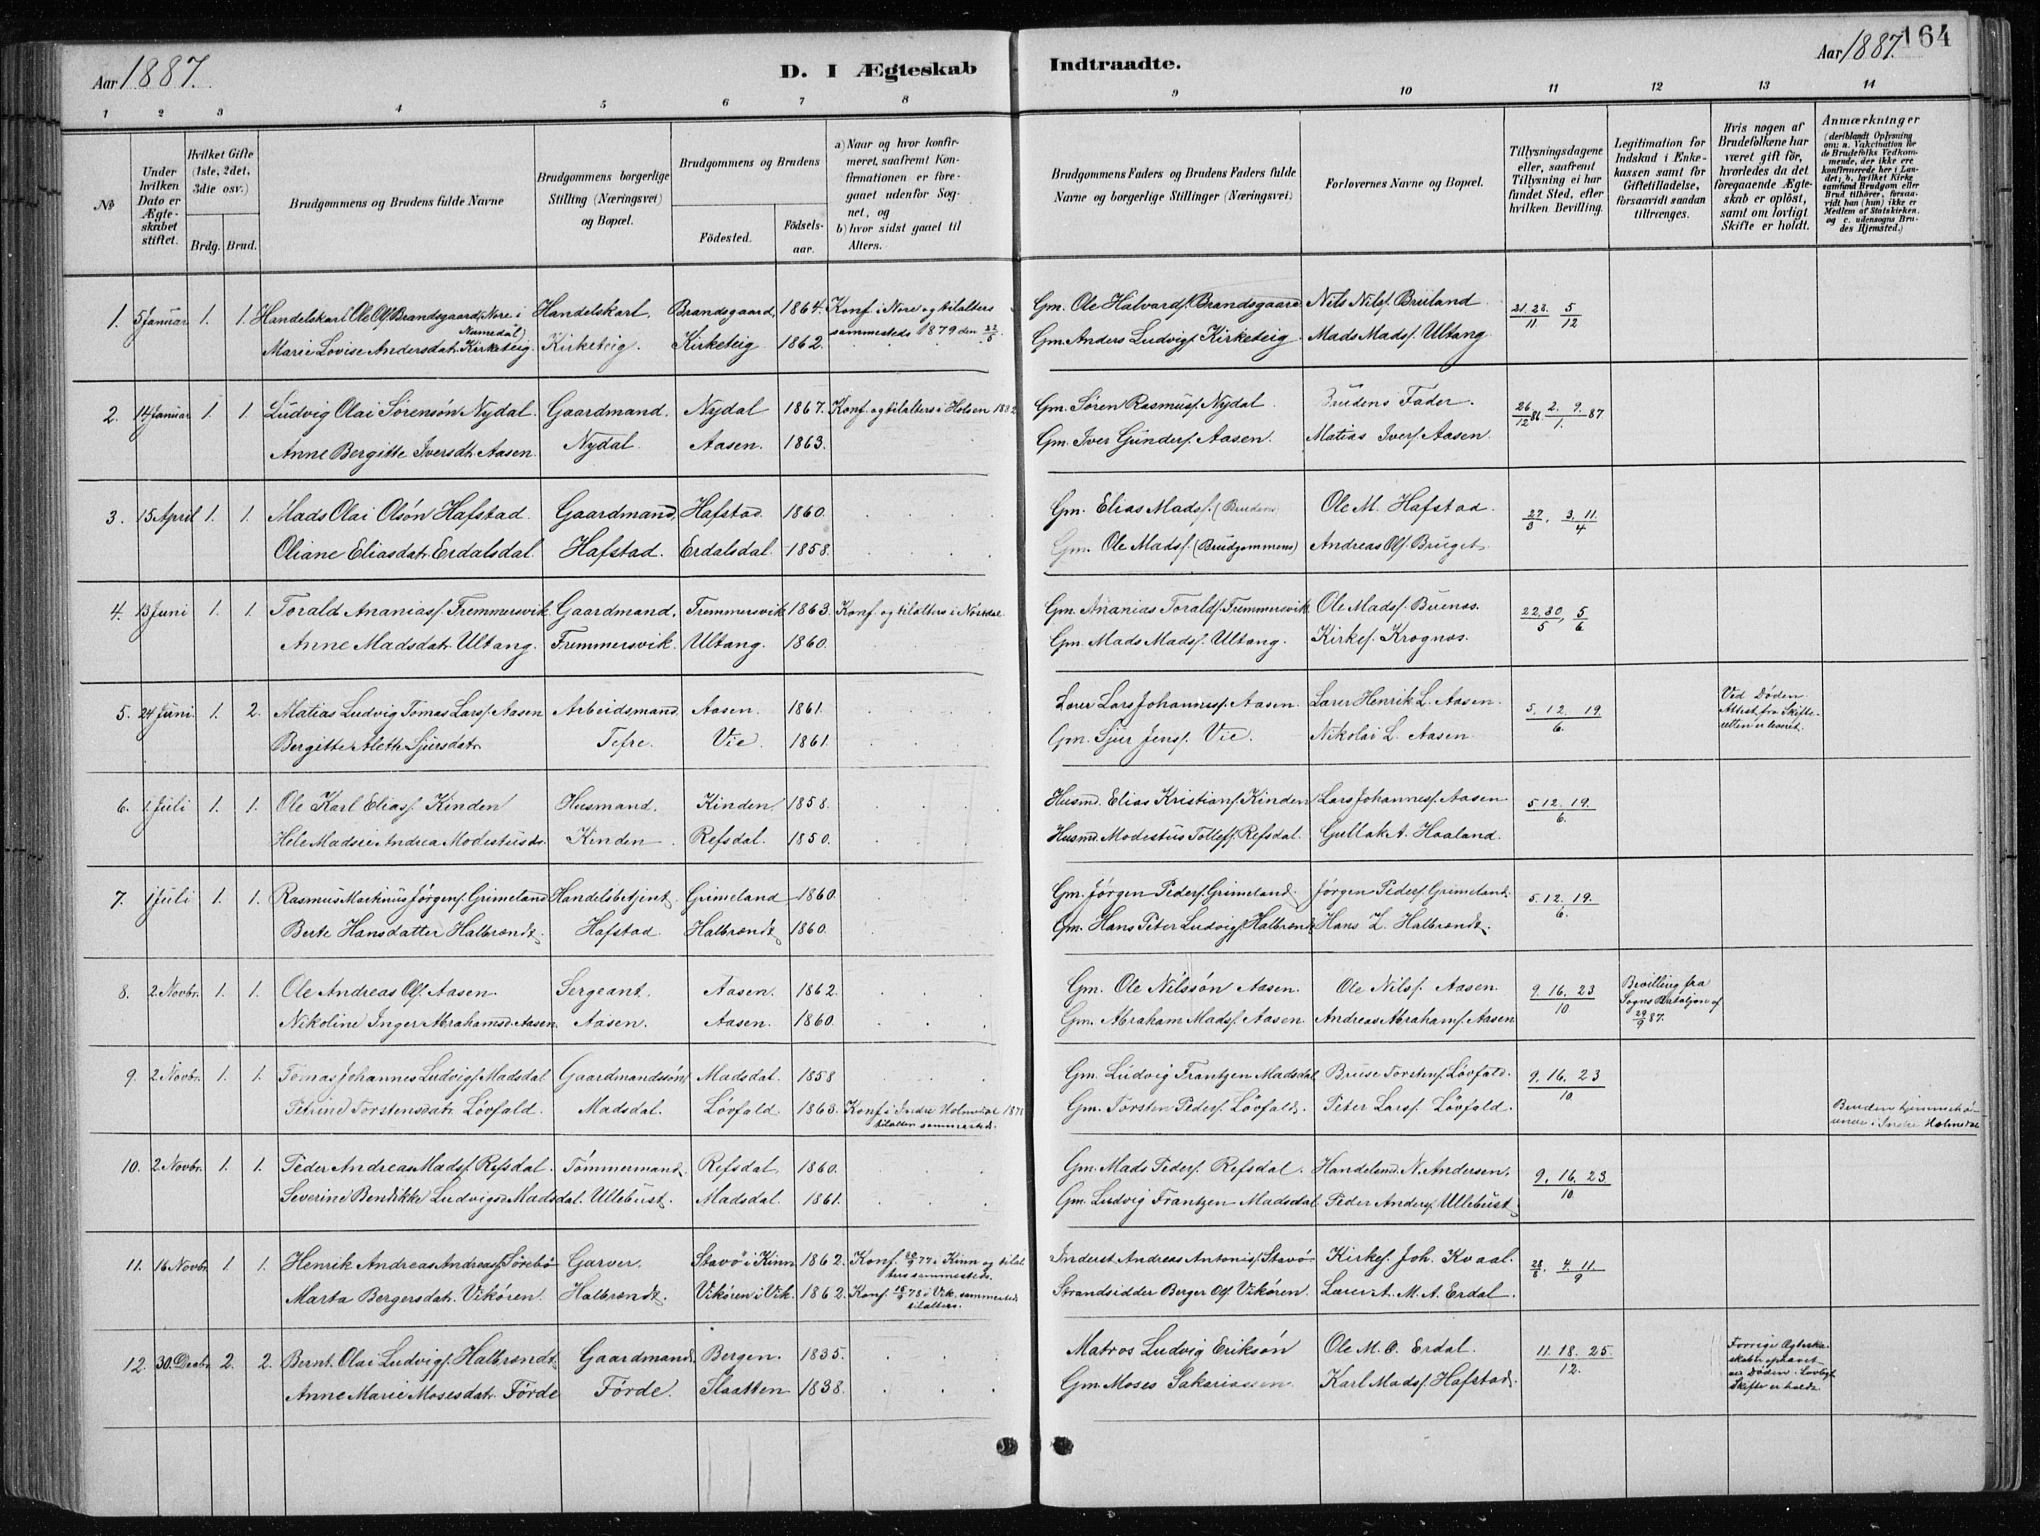 Aar 1887.
D. I Ægteskab Indtraadte.
Aar 1887.
164
1 2 3 4 5 6 7 8 9 10 11 12 13 14
No
Under hvilken Dato er Ægteskabet stiftet.
Hvilket Gifte (1ste, 2det, 3die osv.)
Brdg. Brud.
Brudgommens og Brudens fulde Navne
Brudgommens borgerlige Stilling (Næringsvei) og Bopæl.
Brudgommens og Brudens
Födested.
Födselsaar.
a) Naar og hvor konfirmeret, saafremt Konfirmationen er foregaaet udenfor Sognet, og
b) hvor sidst gaaet til Alters.
Brudgommens Faders og Brudens Faders fulde Navne og borgerlige Stillinger (Næringsvei)
Forlovernes Navne og Bopæl.
Tillysningsdagene eller, saafremt Tillysning ei har fundet Sted, efter hvilken Bevilling.
Legitimation for Indskud i Enkekassen samt for Giftetilladelse, forsaavidt saadan tiltrænges.
Hvis nogen af Brudefolkene har været gift för, hvorledes da det foregaaende Ægteskab er oplöst, samt om lovligt Skifte er holdt.
Anmærkninger (deriblandt Oplysning om: a. Vakcination for de Brudefolks Vedkommende, der ikke ere konfirmerede her i Landet; b. hvilket Kirkesamfund Brudgom eller Brud tilhörer, forsaavidt han (hun) ikke er Medlem af Statskirken, og c. udensogns Brudes Hjemsted.)
1. 5 Januar 1. 1. Handelskarl Ole Ols. Brandsgaard, Nore i Numedal Handelskarl. Brandsgaard 1864. Konf. i Nore og tilalters Gm. Ole Halvards. Brandsgaard Nils Nils. Bruland 21. 28./11 5/12
Marie Lovise Andersdatr. Kirketeig. Kirketeig. Kirketeig 1862. sammesteds 1879 den 22/5. Gm. Anders Ludvigs. Kirketeig. Mads Mads. Ultang
2. 14 Januar 1. 1. Ludvig Olai Sörensön Nydal. Gaardmand. Nydal 1867. Konf. og tilalters i Holsen 1882 Gm. Sören Rasmus. Nydal Brudens Fader. 26/12 86 2. 9./1. 87
Anne Bergitte Iversdt. Aasen. Nydal. Aasen. 1863. Gm. Iver Gunders. Aasen. Matias Ivers. Aasen
3. 15 April 1. 1. Mads Olai Olsön Hafstad. Gaardmand. Hafstad. 1860. Gm. Elias Mads. (Brudens) Ole M. Hafstad. 27/3. 3. 11/4
Oliane Eliasdatr. Erdalsdal. Hafstad. Erdalsdal. 1858. Gm. Ole Mads. (Brudgommens) Andreas Ols. Bruget.
4. 13 Juni 1. 1. Torald Ananias. Fremmersvik. Gaardmand. Fremmersvik 1863. Konf. og tilalters i Norddal Gm. Ananias Toralds. Fremmersvik Ole Mads. Buenæs. 22. 30/5, 5/6
Anne Madsdatr. Ultang. Fremmersvik. Ultang. 1860. Gm. Mads Mads. Ultang. Kirkes. Krognæs.
5. 24 Juni. 1. 2. Matias Ludvig Tomas Lars. Aasen Arbeidsmand. Aasen. 1861. Lærer Lars Johannes. Aasen. Lærer Henrik L. Aasen. 5. 12. 19/6. Ved Döden. Attest fra Skifteretten
Bergitte Alette Sjursdatr. Tefre. Vie. 1861. Gm. Sjur Jens. Vie. Nikolai L. Aasen.
6. 1 Juli 1. 1. Ole Karl Elias. Kinden Husmand. Kinden 1858. Husmd. Elias Kristians. Kinden Lars Johannes. Aasen 5. 12. 19./6.
Hele Madsie Andrea Modestusdr. Kinden Refsdal. 1850. Husmd. Modestus Tolless. Refsdal. Gullak A. Haaland.
7. 1 Juli 1. 1. Rasmus Martinus Jörgens. Grimeland Handelsbetjent. Grimeland 1860. Gm. Jörgen Peders. Grimeland. Jörgen Peders. Grimeland. 5. 12. 19./6.
Berte Hansdatter Halbrendt. Hafstad. Halbrendt. 1860. Gm. Hans Peter Ludvigs. Halbrendt Hans L. Halbrendt.
8. 2 Novbr. 1. 1. Ole Andreas Ols. Aasen. Sergeant. Aasen. 1862. Gm. Ole Nilssön Aasen. Ole Nils. Aasen 9. 16. 23/10 Bevilling fra Sogns Bataljon af 29/9 87.
Nikoline Inger Abrahamsd. Aasen. Aasen. Aasen. 1860. Gm. Abraham Mads. Aasen Andreas Abrahams. Aasen
9. 2 Novbr. 1. 1. Tomas Johannes Ludvigs. Madsdal Gaardmandssön Madsdal. 1858 Gm. Ludvig Frantzen Madsdal Bruse Torstens. Lövfald. 9. 16. 23/10
Torstensdatr. Lövfald. Madsdal. Lövfald. 1863. Konf. i Indre Holmedal 1878 tilalters sammesteds. Gm. Torsten Peders. Lövfald. Peter Lars. Lövfald. Bruden hjemmehörende i Indre Holmedal
10. 2 Novbr. 1. 1. Peder Andreas Mads. Refsdal. Tömmermand. Refsdal. 1860. Gm. Mads Peders. Refsdal. Handelsmd. N. Andersen. 9. 16. 23/10
Severine Bendikke Ludvigsd. Madsdal. Ullebust. Madsdal. 1861. Gm. Ludvig Frantzen Madsdal Peder Anders. Ullebust.
11. 16 Novbr 1. 1. Henrik Andreas Andreas. Sörebö Garver. Stavö i Kinn 1862. Konf. 30/9 77 i Kinn og tilalters sammesteds. Inderst Andreas Antonis. Stavö Kirkes. Joh. Kvaal. 28/8. 4. 11/9
Marta Bergersdatr. Vikören. Halbrendt. Vikören i Vik. 1862. Konf. 15/9 78 i Vik, sammesteds tilalters. Strandsidder Berger Ols. Vikören. Lærer A. M. A. Erdal.
12. 30. Decbr 2. 2. Bernt Olai Ludvigs. Halbrendt. Gaardmand. Bergen. 1835. Matros Ludvig Eriksön Ole M. O. Erdal. 11. 18. 25./12. Forrige Ægteskaber ophævet ved Döden. Lovligt Skifte er holdt.
Anne Marie Mosesdatr. Förde Förde. Slaatten 1838. Gm. Moses Sakariassen Karl Mads. Hafstad.